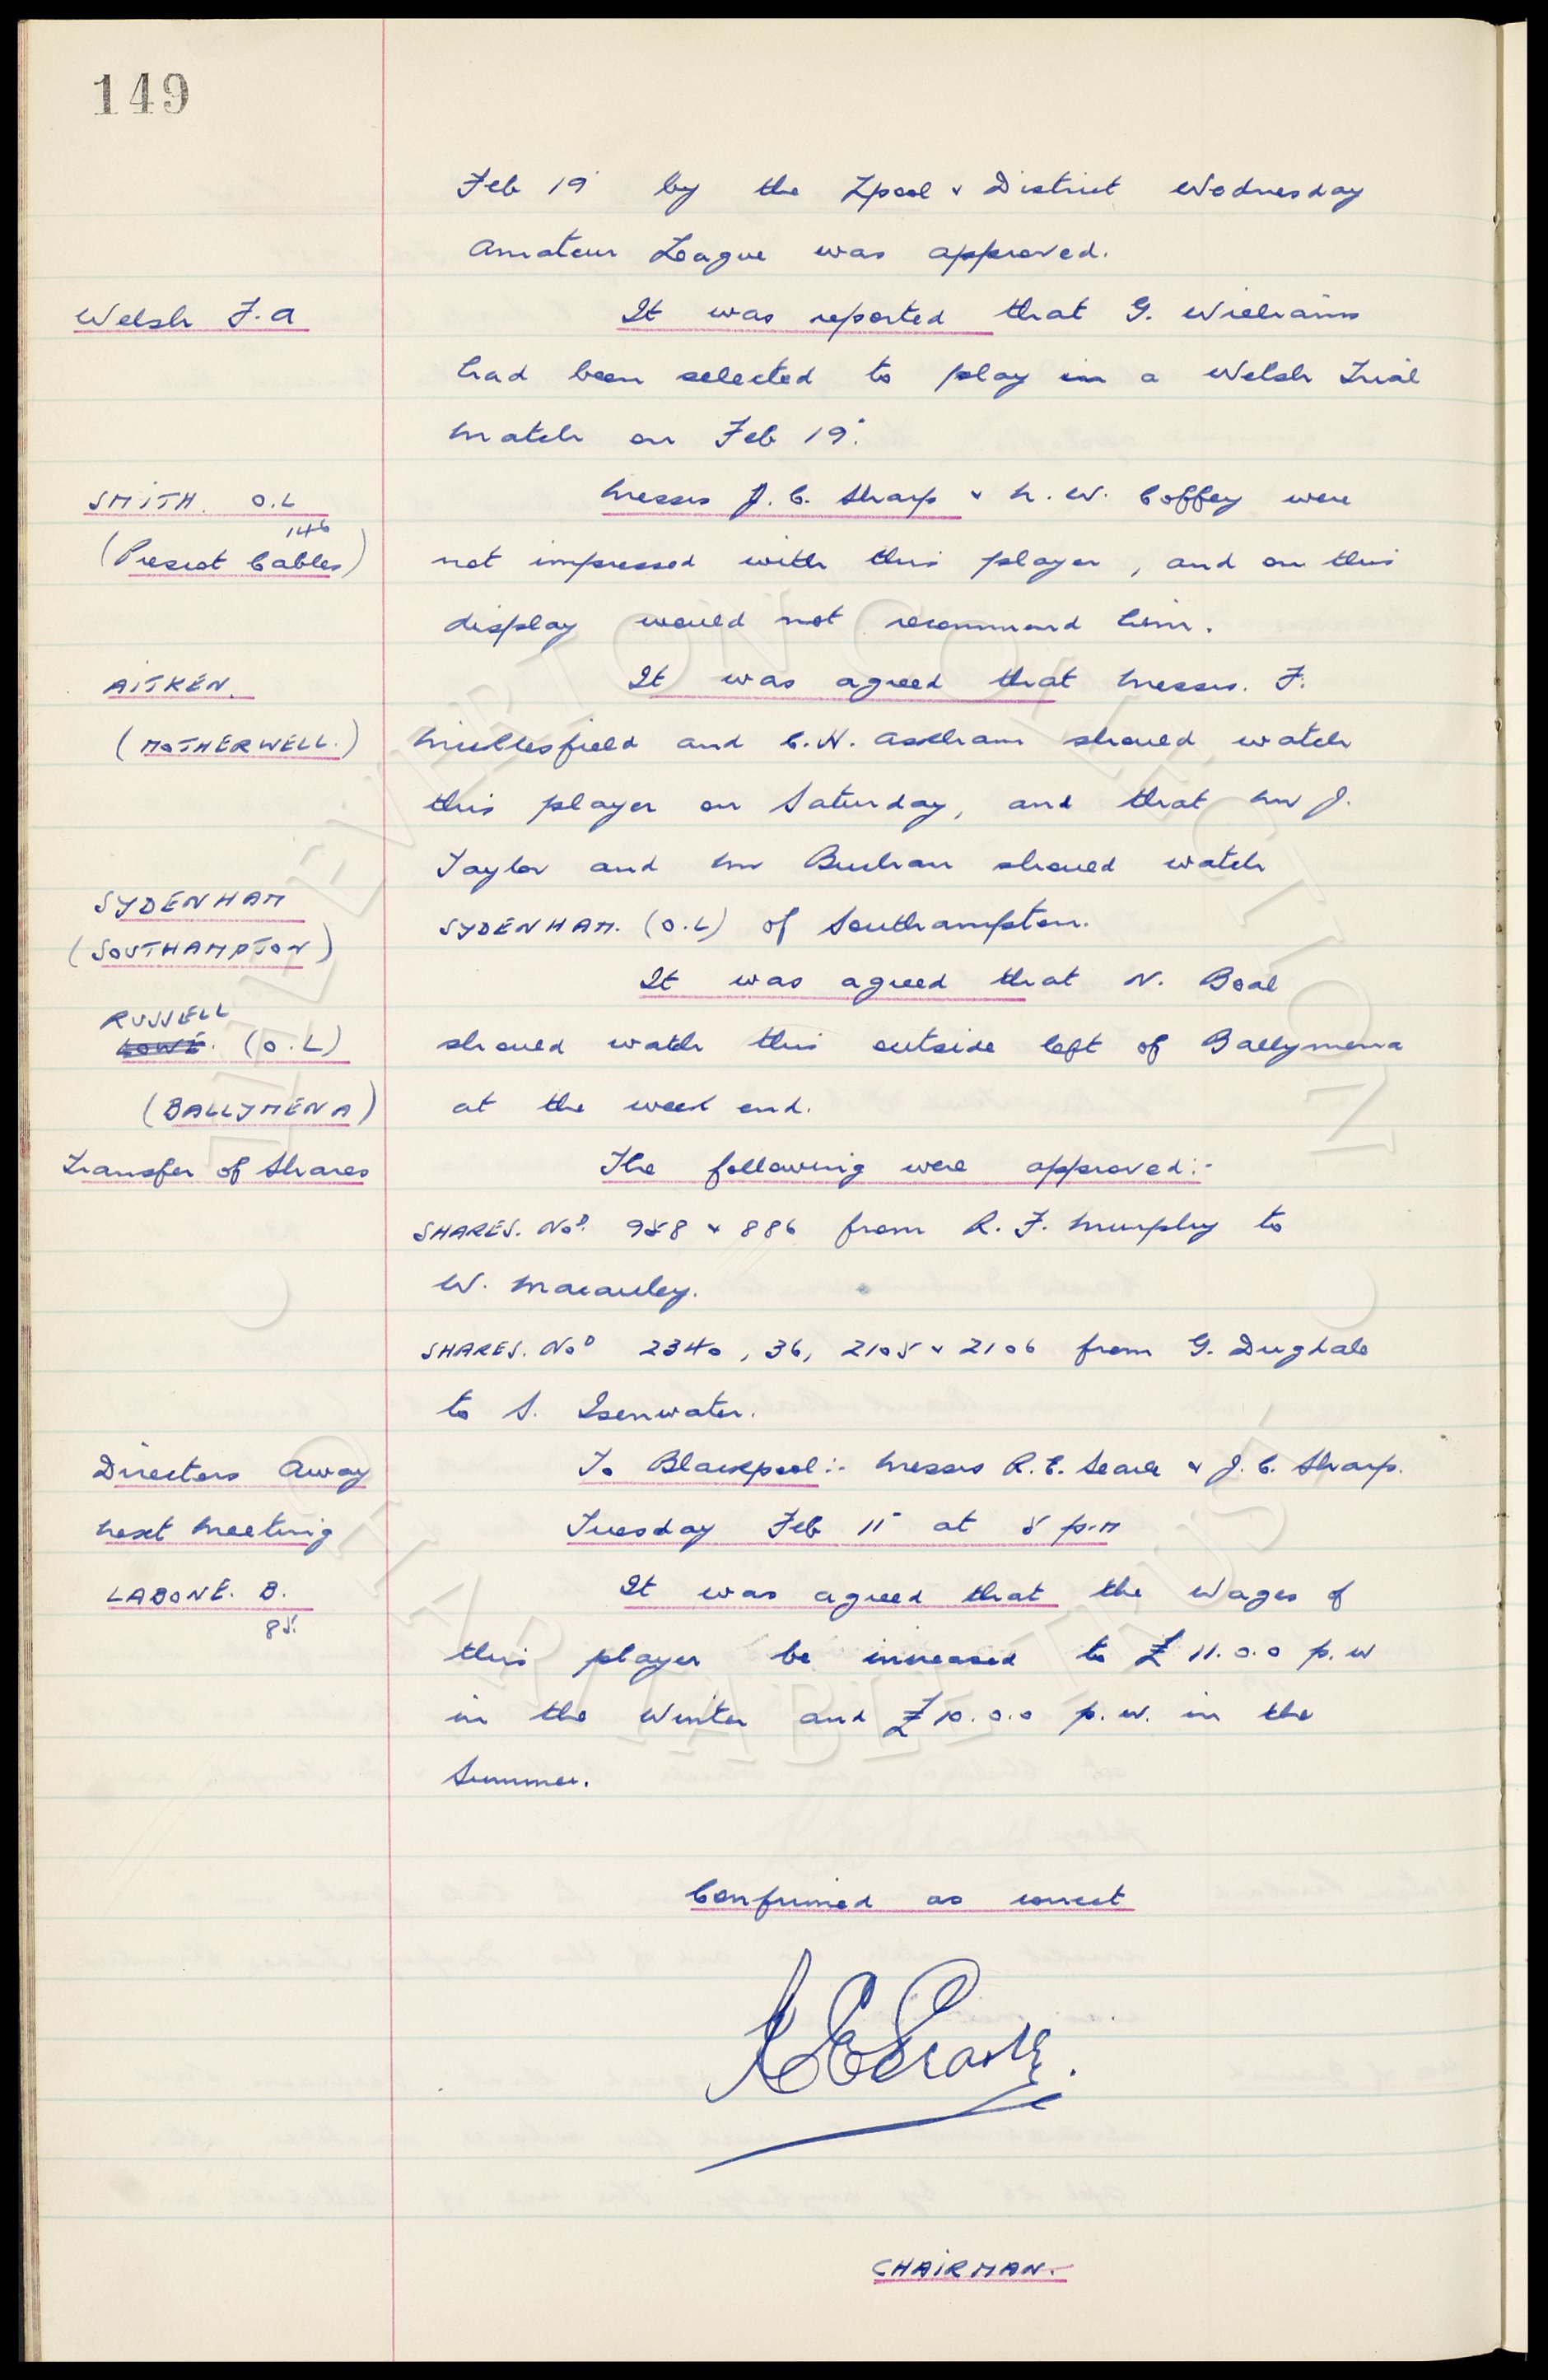 149
Feb 19" by the Lpool & District Wednesday
Amateur League was approved.
Welsh F.A
It was reported that G. Williams
had been selected to play in a Welsh Trial
Match on Feb 19".
SMITH. O.L
146
(Prescot Cables)
Messrs J. C. Sharp & N. W. Coffey were
not impressed with this player, and on this
display would not recommend him.
AITKEN.
(MOTHERWELL.)
It was agreed that Messrs. F.
Micklesfield and C. H. Askham should watch
this player on Saturday, and that Mr J.
Taylor and Mr Buchan should watch
SYDENHAM
(SOUTHAMPTON)
SYDENHAM. (O.L) of Southampton.
RUSSELL
LOWE. (O.L)
(BALLYMENA)
It was agreed that N. Boal
should watch this outside left of Ballymena
at the week end.
Transfer of Shares
The following were approved:-
SHARES. Nos. 958 & 886 from R. F. Murphy to
W. Macauley.
SHARES. Nos 2340, 36, 2105 & 2106 from G. Dugdale
to S. Isenwater.
Directors Away
To Blackpool:- Messrs R. E. Searle & J. C. Sharp.
Next Meeting
Tuesday Feb 11" at 5 p.m
LABONE. B.
85.
It was agreed that the Wages of
this player be increased to £11.0.0 p.w
in the Winter and £10.0.0 p.w. in the
Summer.
Confirmed as correct
R E Searle.
CHAIRMAN.
THE EVERTON COLLECTION
CHARITABLE TRUST